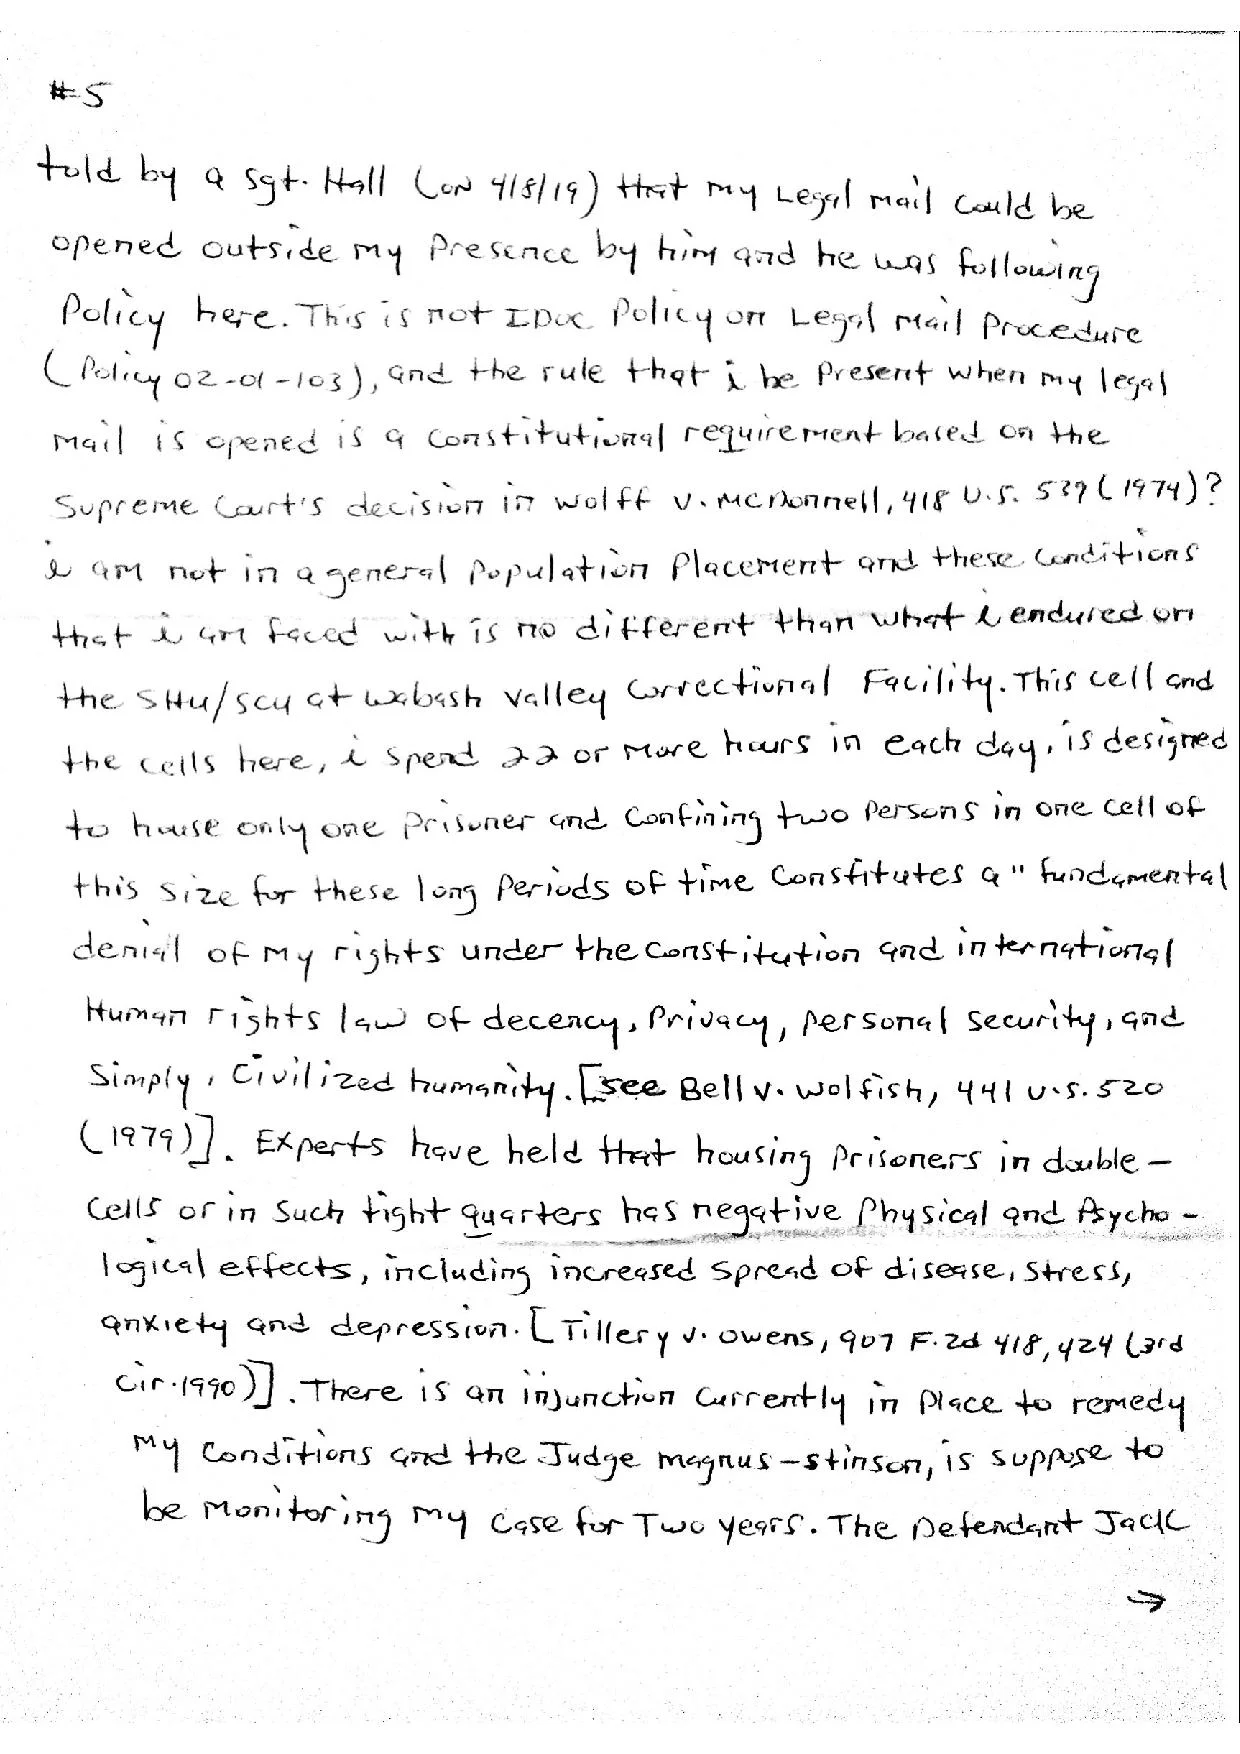 #5
told by a Sgt. Hall (on 4/8/19) that my Legal Mail could be
opened outside my Presence by him and he was following
Policy here. This is not IDOC Policy on Legal Mail Procedure
(Policy 02-01-103), and the rule that i be Present when my legal
Mail is opened is a Constitutional requirement based on the
Supreme Court's decision in Wolff v. McDonnell, 418 U.S. 539 (1974)?
i am not in a general Population Placement and these Conditions
that i am faced with is no different than what i endured on
the SHU/SCU at Wabash Valley Correctional Facility. This cell and
the cells here, i spend 22 or more hours in each day, is designed
to house only one Prisoner and Confining two Persons in one cell of
this size for these long Periods of time Constitutes a "fundamental
denial of My rights under the Constitution and international
Human rights law of decency, Privacy, personal security, and
Simply, Civilized humanity. [see Bell v. Wolfish, 441 U.S. 520
(1979)]. Experts have held that housing Prisoners in double-
Cells or in Such tight quarters has negative Physical and Psycho-
logical effects, including increased spread of disease, stress,
anxiety and depression. [Tillery v. Owens, 907 F.2d 418, 424 (3rd
Cir. 1990)]. There is an injunction Currently in Place to remedy
My Conditions and the Judge Magnus-Stinson, is suppose to
be Monitoring My Case for Two years. The Defendant Jack
→